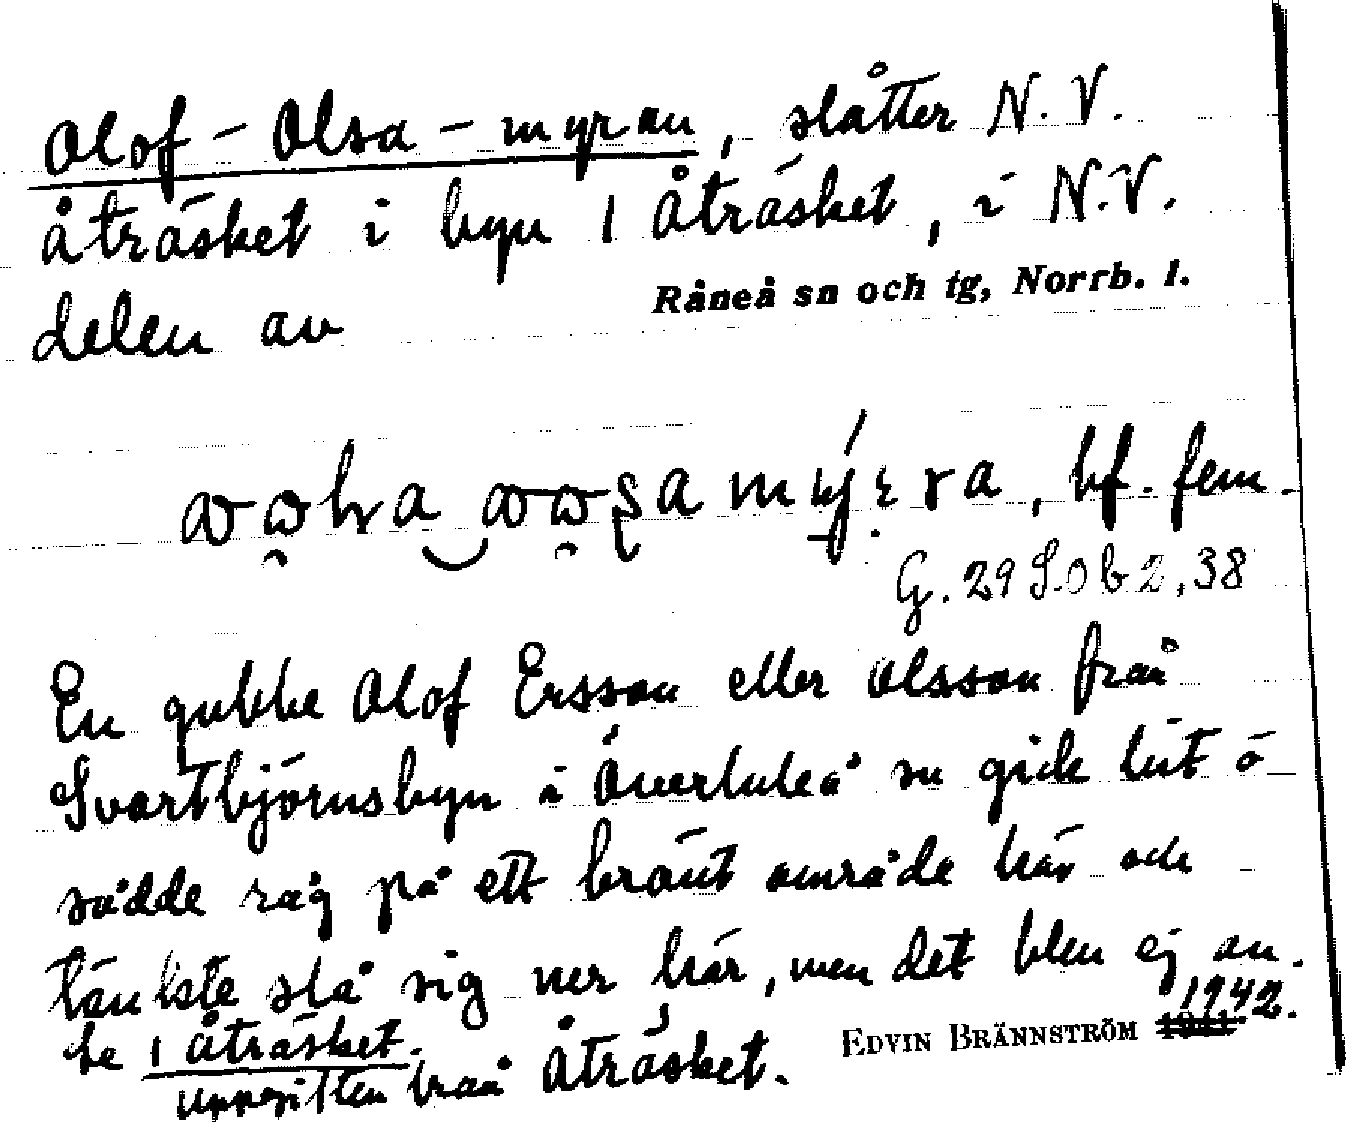 Olof-Olsa-myran, slåtter N.V.
Åträsket i byn 1 Åträsket, i N.V.
Råneå sn och tg, Norrb. l.
delen av
bf. fem.
G. 29 S. 0 b 2, 38
En gubbe Olof Ersson eller Olsson från
Svartbjörnsbyn i Överluleå sn gick hit o
sådde råg på ett bränt område här och
tänkte slå sig ner här, men det blev ej av.
be 1 Åträsket.
Uppgiften från Åträsket.
EDVIN BRÄNNSTRÖM 1942.